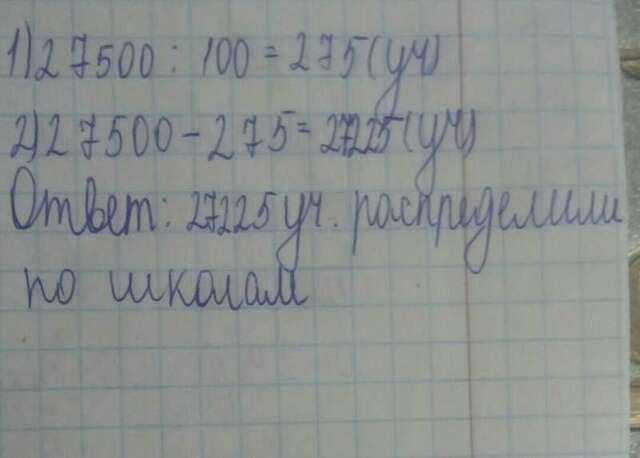 1) 27500 : 100 = 275 (уч)
2) 27500 - 275 = 27225 (уч)
Ответ: 27225 уч. распределили
по школам